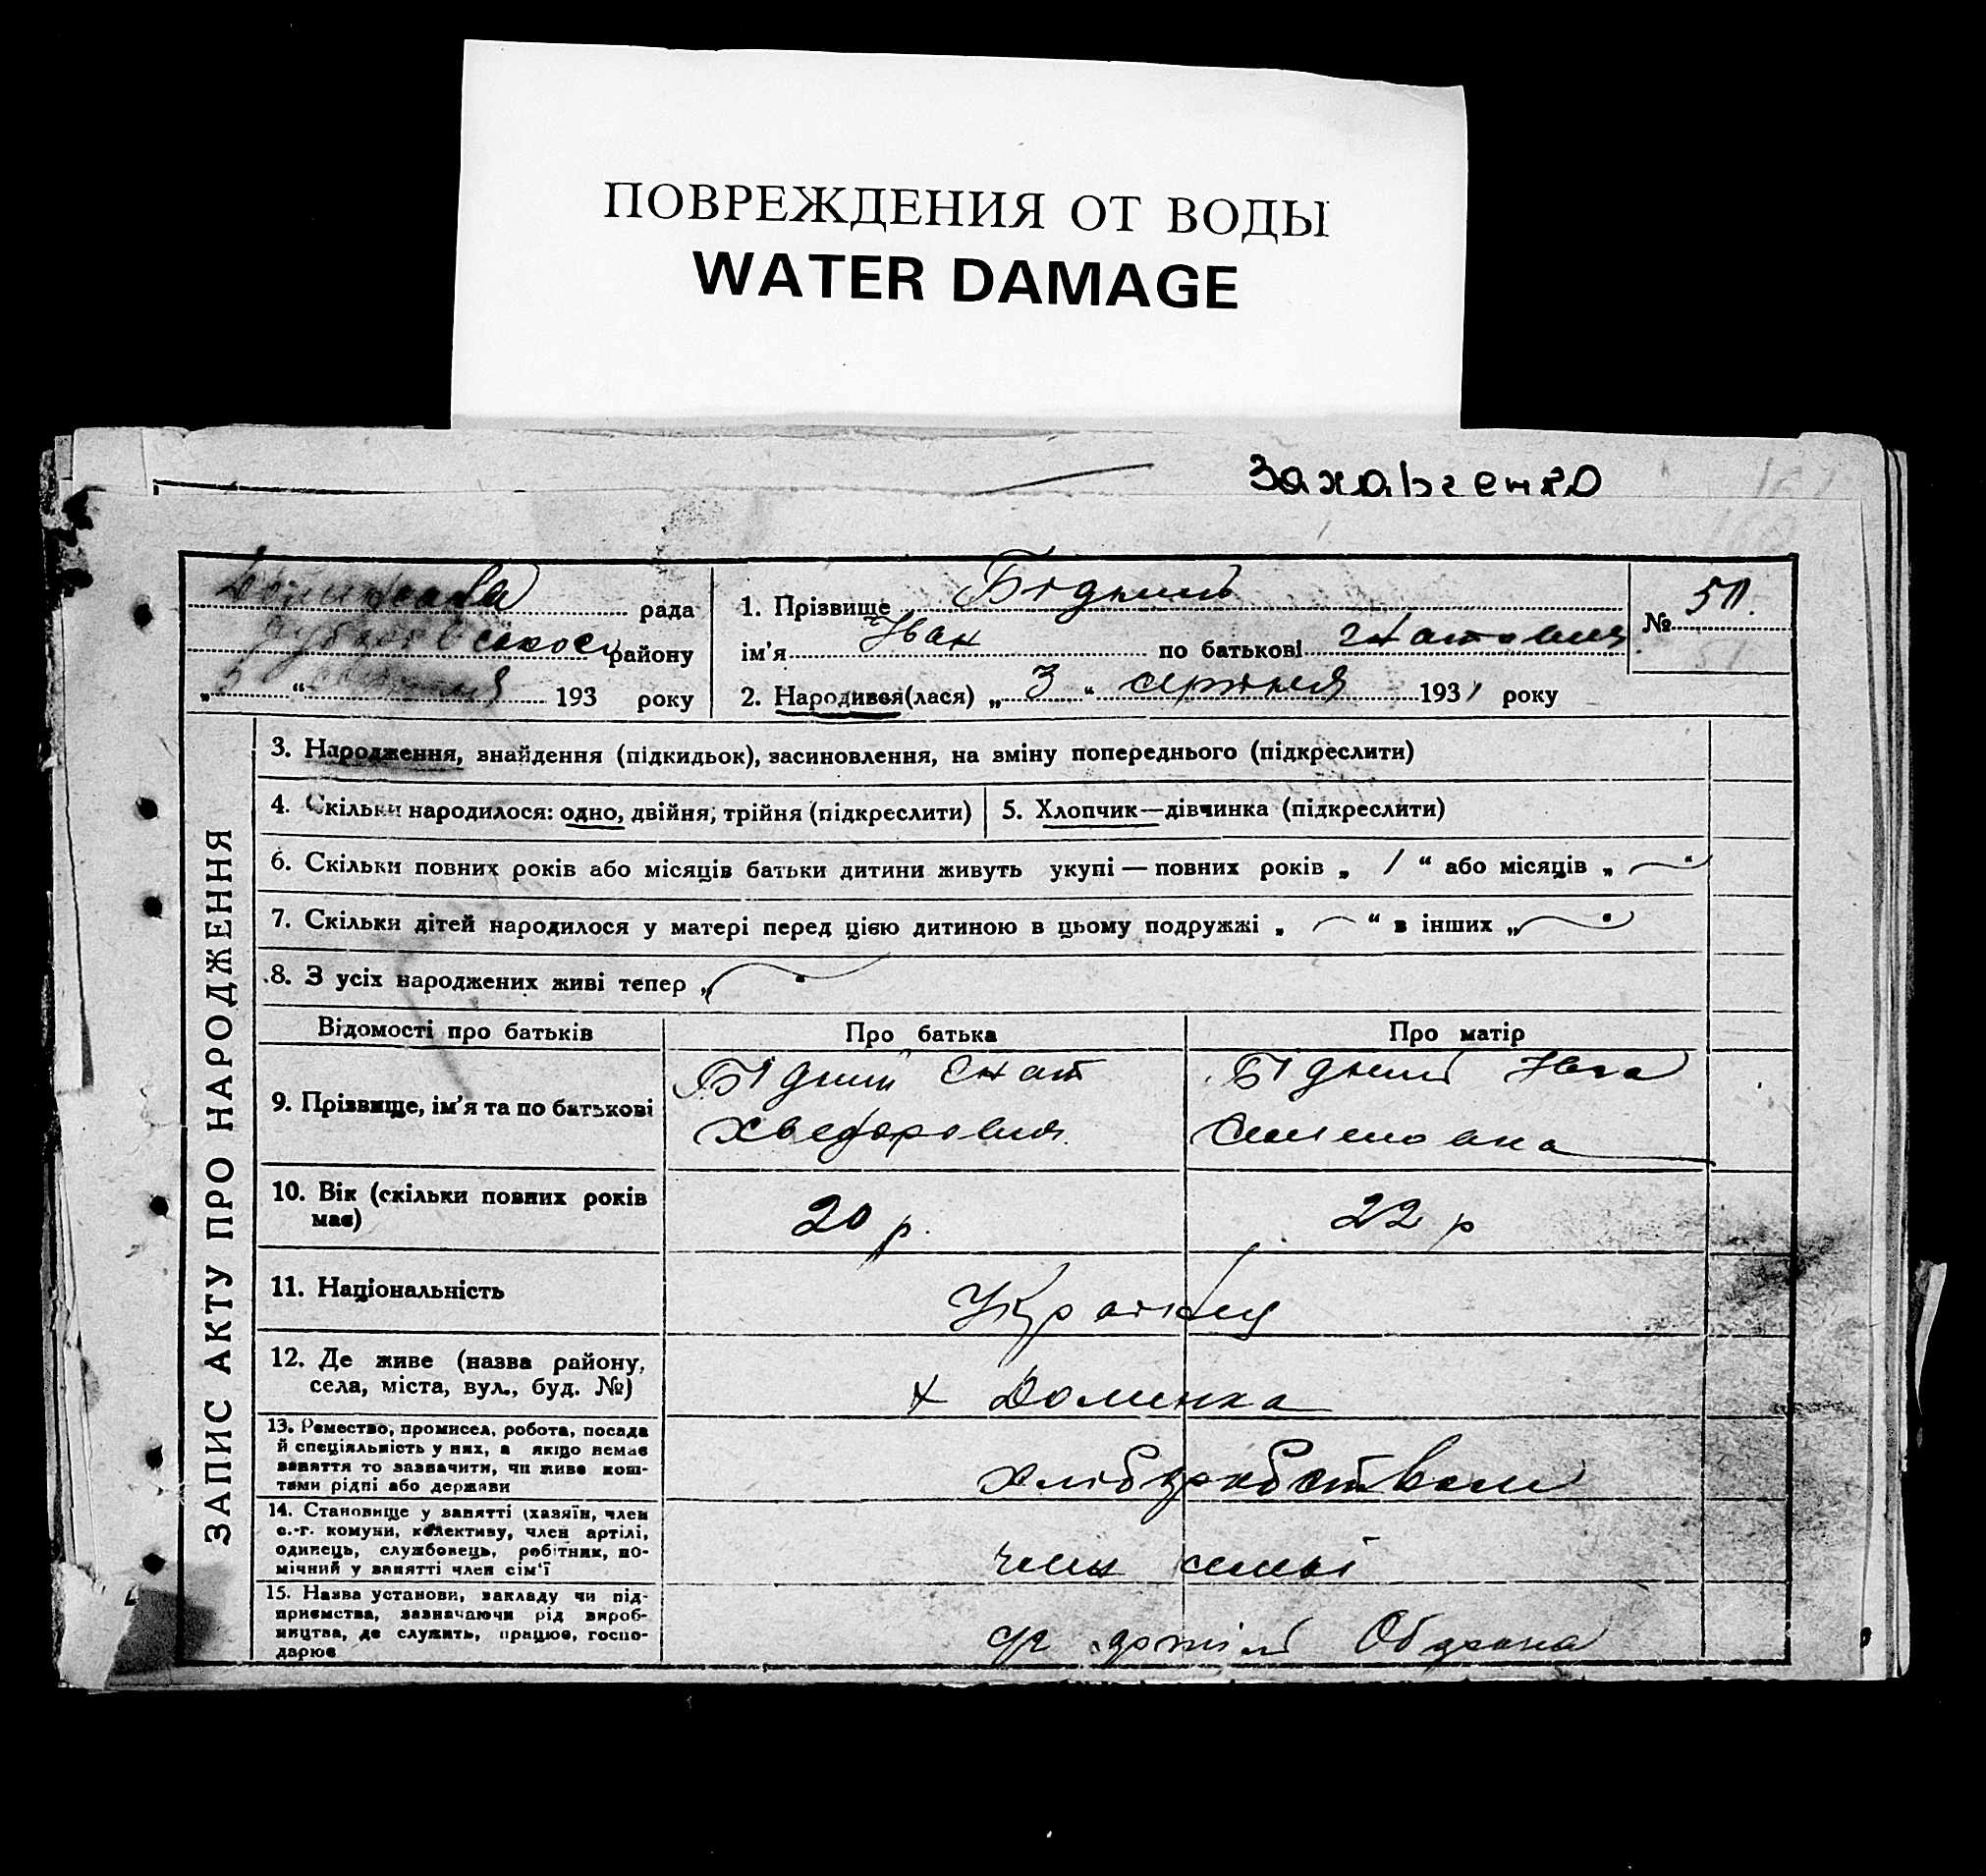 ПОВРЕЖДЕНИЯ ОТ ВОДЫ
WATER DAMAGE
рада
району
„ 5 “ 193 року
1. Прізвище Бідний
ім'я Іван по батькові
2. Народився(лася) „ 3 “ серпня 1931 року
№ 50.
ЗАПИС АКТУ ПРО НАРОДЖЕННЯ
3. Народження, знайдення (підкидьок), засиновлення, на зміну попереднього (підкреслити)
4. Скільки народилося: одно, двійня, трійня (підкреслити)
5. Хлопчик—дівчинка (підкреслити)
6. Скільки повних років або місяців батьки дитини живуть укупі — повних років „ 1 “ або місяців „ — “
7. Скільки дітей народилося у матері перед цією дитиною в цьому подружжі „ — “ в інших „ — “
8. З усіх народжених живі тепер „ — “
Відомості про батьків Про батька Про матір
9. Прізвище, ім'я та по батькові
Бідний Гнат
Хведорович
Бідний
Семеновна
10. Вік (скільки повних років
має)
20 р.
22 р
11. Національність
12. Де живе (назва району,
села, міста, вул., буд. №)
х Долинка
13. Ремество, промисел, робота, посада
й спеціяльність у них, а якщо немає
заняття то зазначити, чи живе кош-
тами рідні або держави
хліборобством
14. Становище у занятті (хазяїн, член
с.-г. комуни, колективу, член артілі,
одинець, службовець, робітник, по-
мічний у занятті член сім'ї
член семьї
15. Назва установи, закладу чи під-
приємства, зазначаючи рід вироб-
ництва, де служить, працює, госпо-
дарює